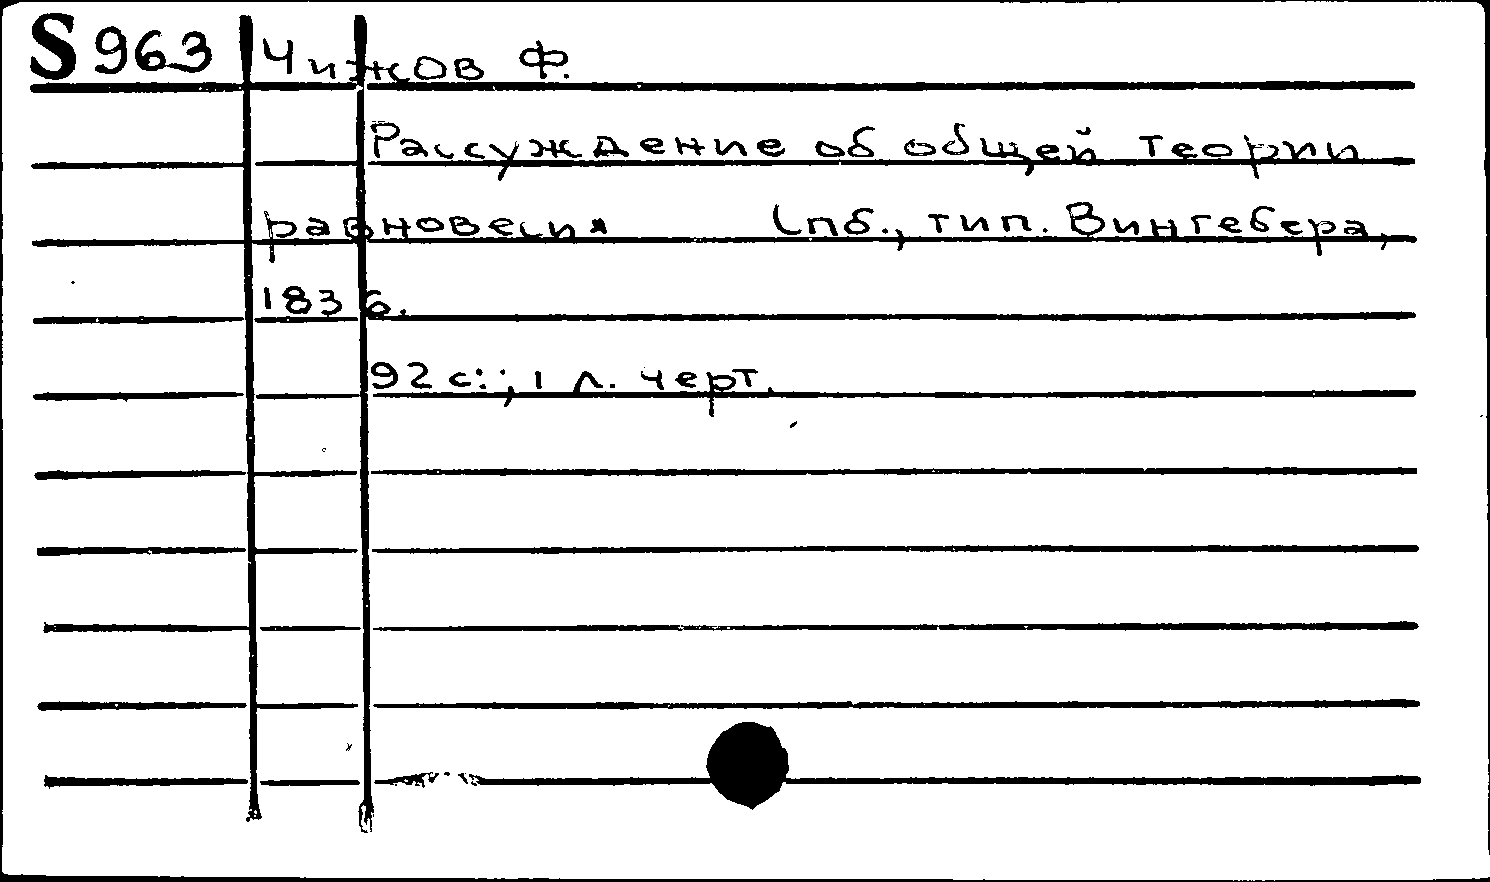 S 963 Чижов Ф.
Рассуждение об общей теории
равновесия Спб., тип. Вингебера,
1836.
92 с.; 1 л. черт.